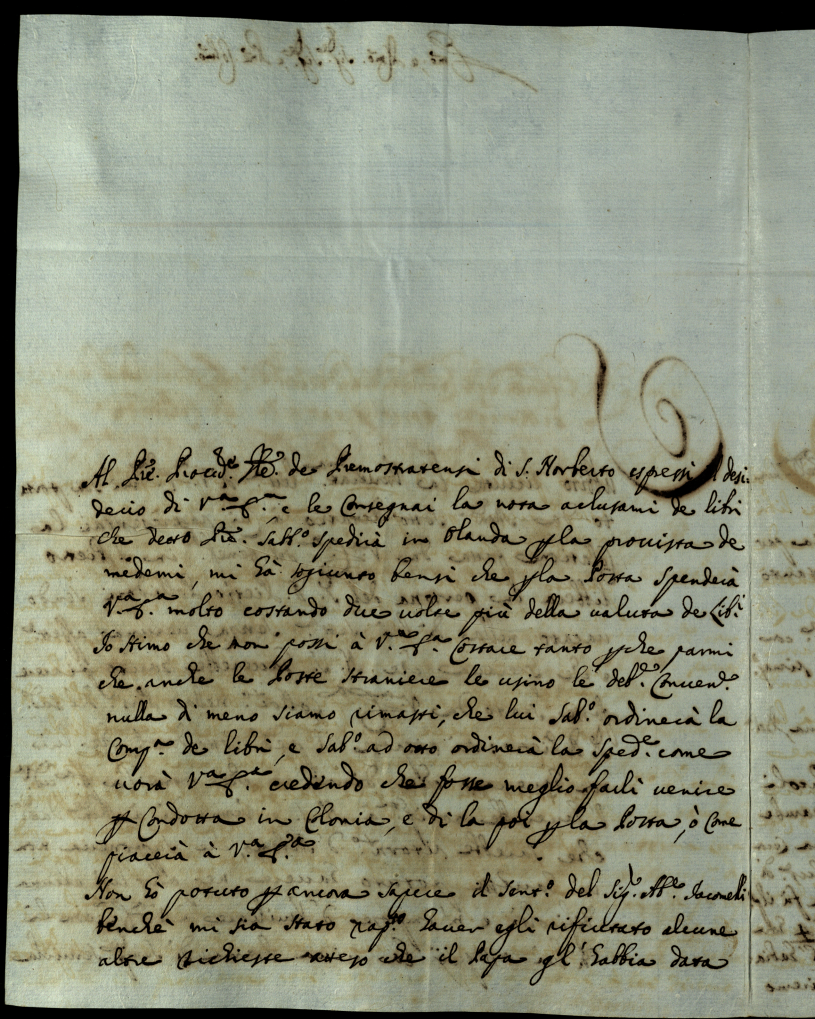 Al Pre. Proccdre. Gle. de Premostratensi di S. Norberto espressi il desi:
derio di V.a S.a, e le Consegnai la nota aclusami de libri
che detto Pre. Sabb.o spedirà in Olanda p la provista de
medemi, mi hà sogiunto bensi che p la Posta spenderà
V.a S.a molto costando due volte più della valuta de Lib.i
Io stimo che non possi à V.a S.a Costare tanto pche parmi
che anche le Poste straniere le usino le deb.e Convend.e
nulla di meno siamo rimasti, che lui Sab.o ordinerà la
Comp.a de libri, e Sab.o ad otto ordinerà la Sped.e come
vorà V.a S.a credendo che fosse meglio farli venire
p Condotta in Colonia, e di la poi p la Posta, ò Come
piacerà à V.a S.a
Non hò potuto p ancora sapere il sent.o del Sig.r Ab.e Iacomelli
benche mi sia stato rap.to haver egli rifiutato alcune
altre richieste atteso che il Papa gl' habbia data